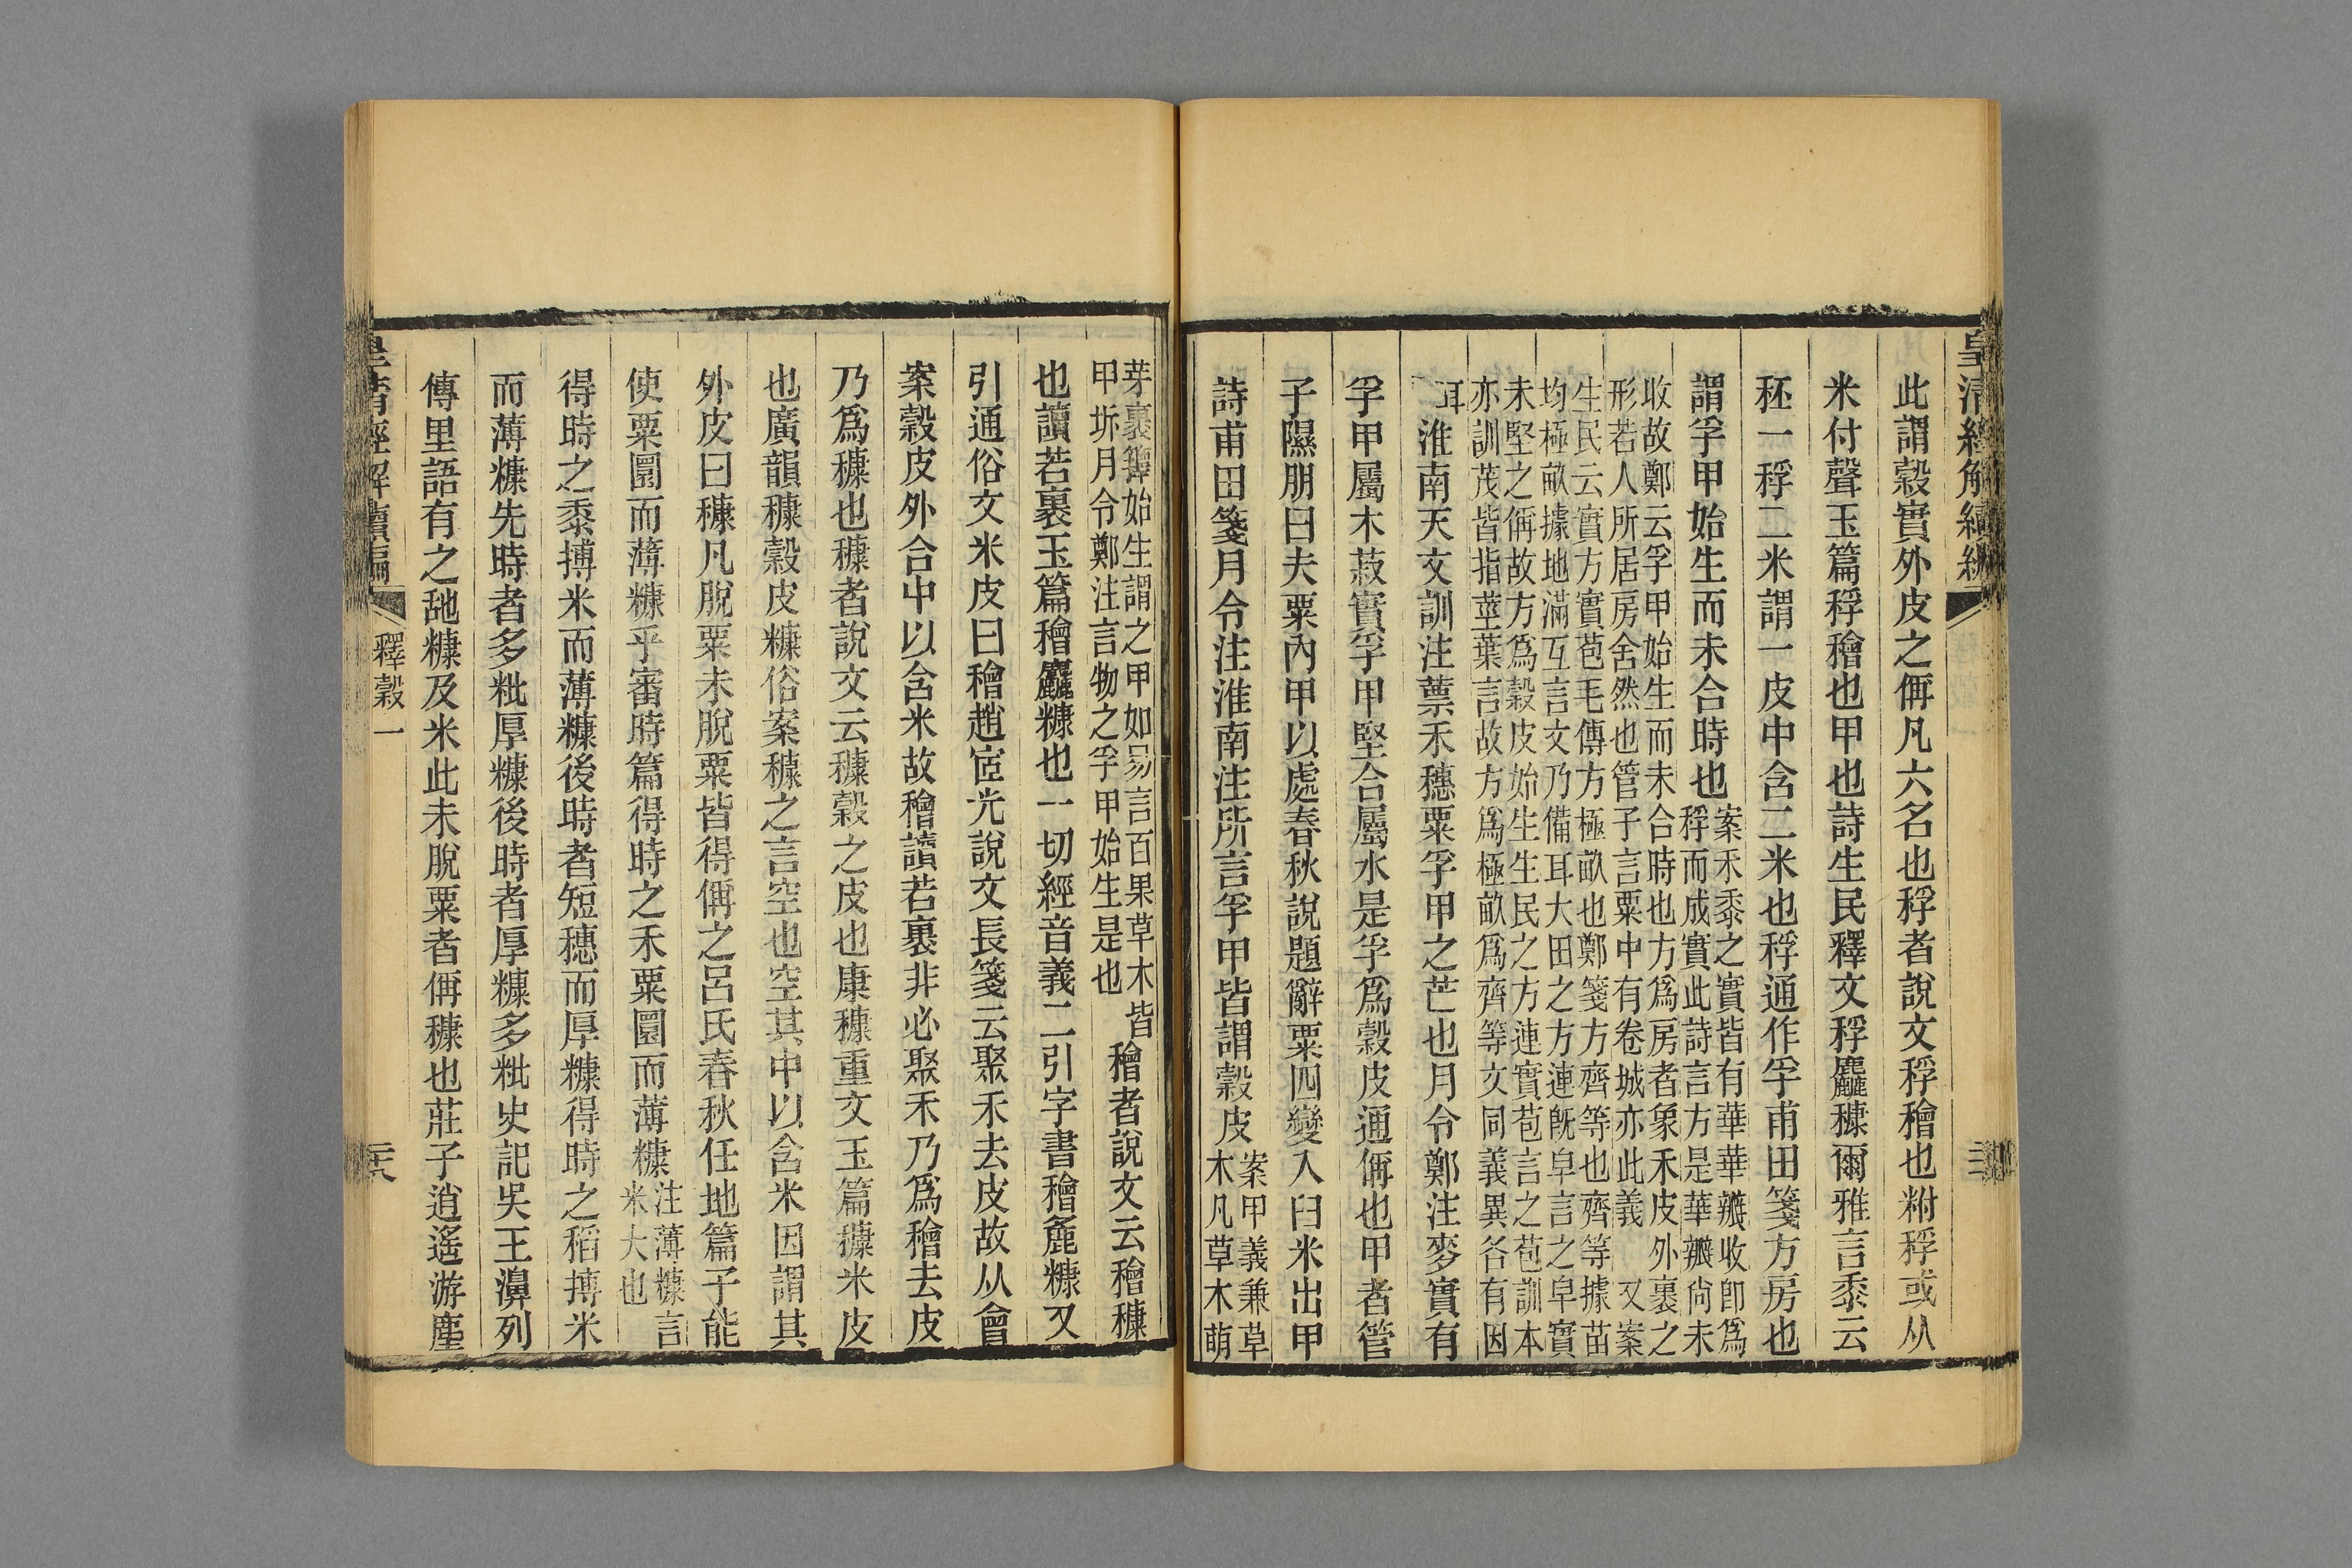 皇清經解續編
此謂穀實外皮之偁凡六名也稃者說文稃𥢶也粰稃或从
米付聲玉篇稃𥢶也甲也詩生民釋文稃麤穅爾雅言黍云
秠一稃二米謂一皮中含二米也稃通作孚甫田箋方房也
謂孚甲始生而未合時也
案禾黍之實皆有華華瓣收卽爲
稃而成實此詩言方是華瓣尙未
收故鄭云孚甲始生而未合時也方爲房者象禾皮外裹之
形若人所居房舍然也管子言粟中有卷城亦此義 又案
生民云實方實苞毛傳方極畝也鄭箋方齊等也齊等據苗
均極畝據地滿互言文乃備耳大田之方連旣皁言之皁實
未堅之偁故方爲穀皮始生生民之方連實苞言之苞訓本
亦訓茂皆指莖葉言故方爲極畝爲齊等文同義異各有因
耳 淮南天文訓注蔈禾穗粟孚甲之芒也月令鄭注麥實有
孚甲屬木菽實孚甲堅合屬水是孚爲穀皮通偁也甲者管
子隰朋曰夫粟內甲以處春秋說題辭粟四變入臼米出甲
詩甫田箋月令注淮南注所言孚甲皆謂穀皮
案甲義兼草
木凡草木萌
芽裹籜始生謂之甲如易言百果草木皆
甲坼月令鄭注言物之孚甲始生是也
𥢶者說文云𥢶穅
也讀若裹玉篇𥢶麤糠也一切經音義二引字書𥢶麁糠又
引通俗文米皮曰𥢶趙宧光說文長箋云聚禾去皮故从會
案穀皮外合中以含米故𥢶讀若裹非必聚禾乃爲𥢶去皮
乃爲穅也穅者說文云穅穀之皮也康穅重文玉篇穅米皮
也廣韻穅穀皮糠俗案穅之言空也空其中以含米因謂其
外皮曰穅凡脫粟未脫粟皆得偁之呂氏春秋任地篇子能
使粟圜而薄糠乎審時篇得時之禾粟圜而薄糠
注薄糠言
米大也
得時之黍搏米而薄糠後時者短穗而厚糠得時之稻搏米
而薄糠先時者多粃厚糠後時者厚糠多粃史記吳王濞列
傳里語有之䑛糠及米此未脫粟者偁穅也莊子逍遙游塵
皇清經解續編
釋穀一